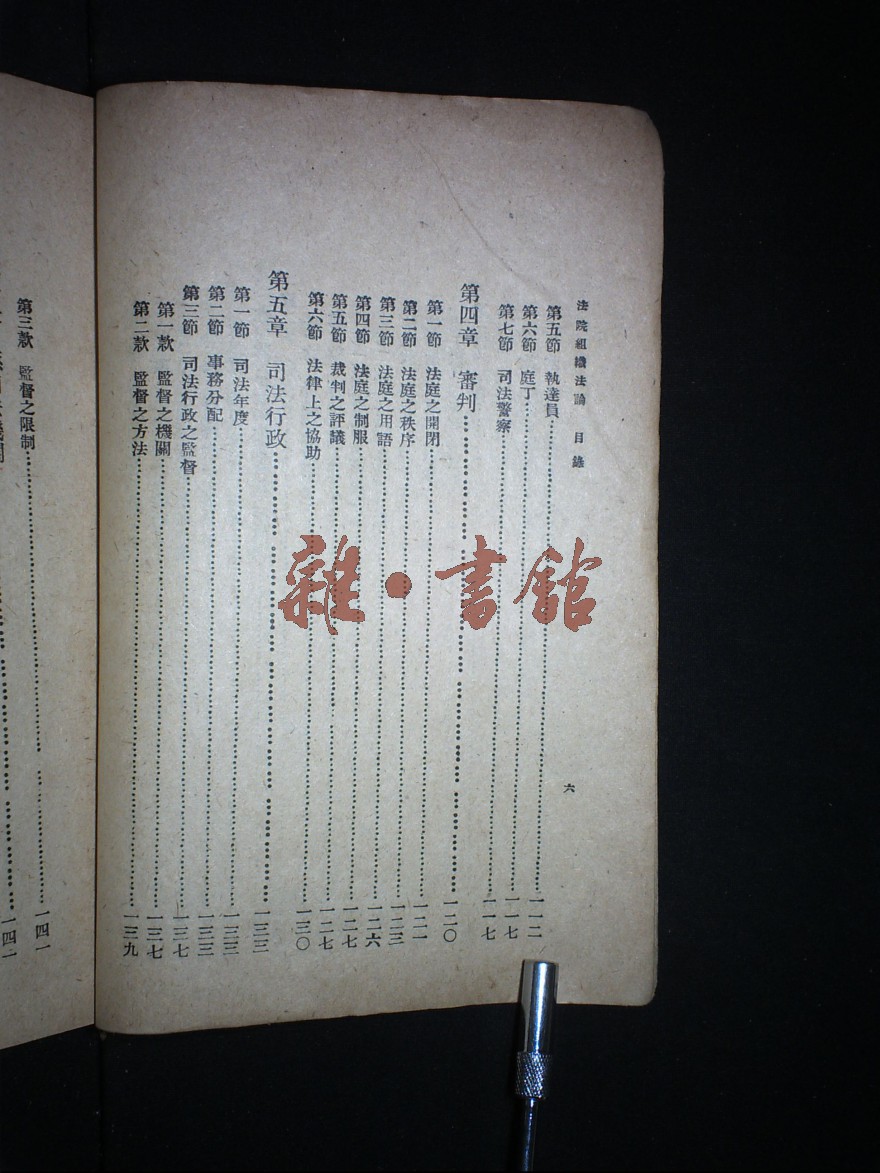 法院組織法論 目錄 六
第五節 執達員 一一二
第六節 庭丁 一一七
第七節 司法警察 一一七
第四章 審判 一二〇
第一節 法庭之開閉 一二一
第二節 法庭之秩序 一二三
第三節 法庭之用語 一二六
第四節 法庭之制服 一二七
第五節 裁判之評議 一二七
第六節 法律上之協助 一三〇
第五章 司法行政 一三三
第一節 司法年度 一三三
第二節 事務分配 一三三
第三節 司法行政之監督 一三七
第一款 監督之機關 一三七
第二款 監督之方法 一三九
第三款 監督之限制 一四一
雜·書館